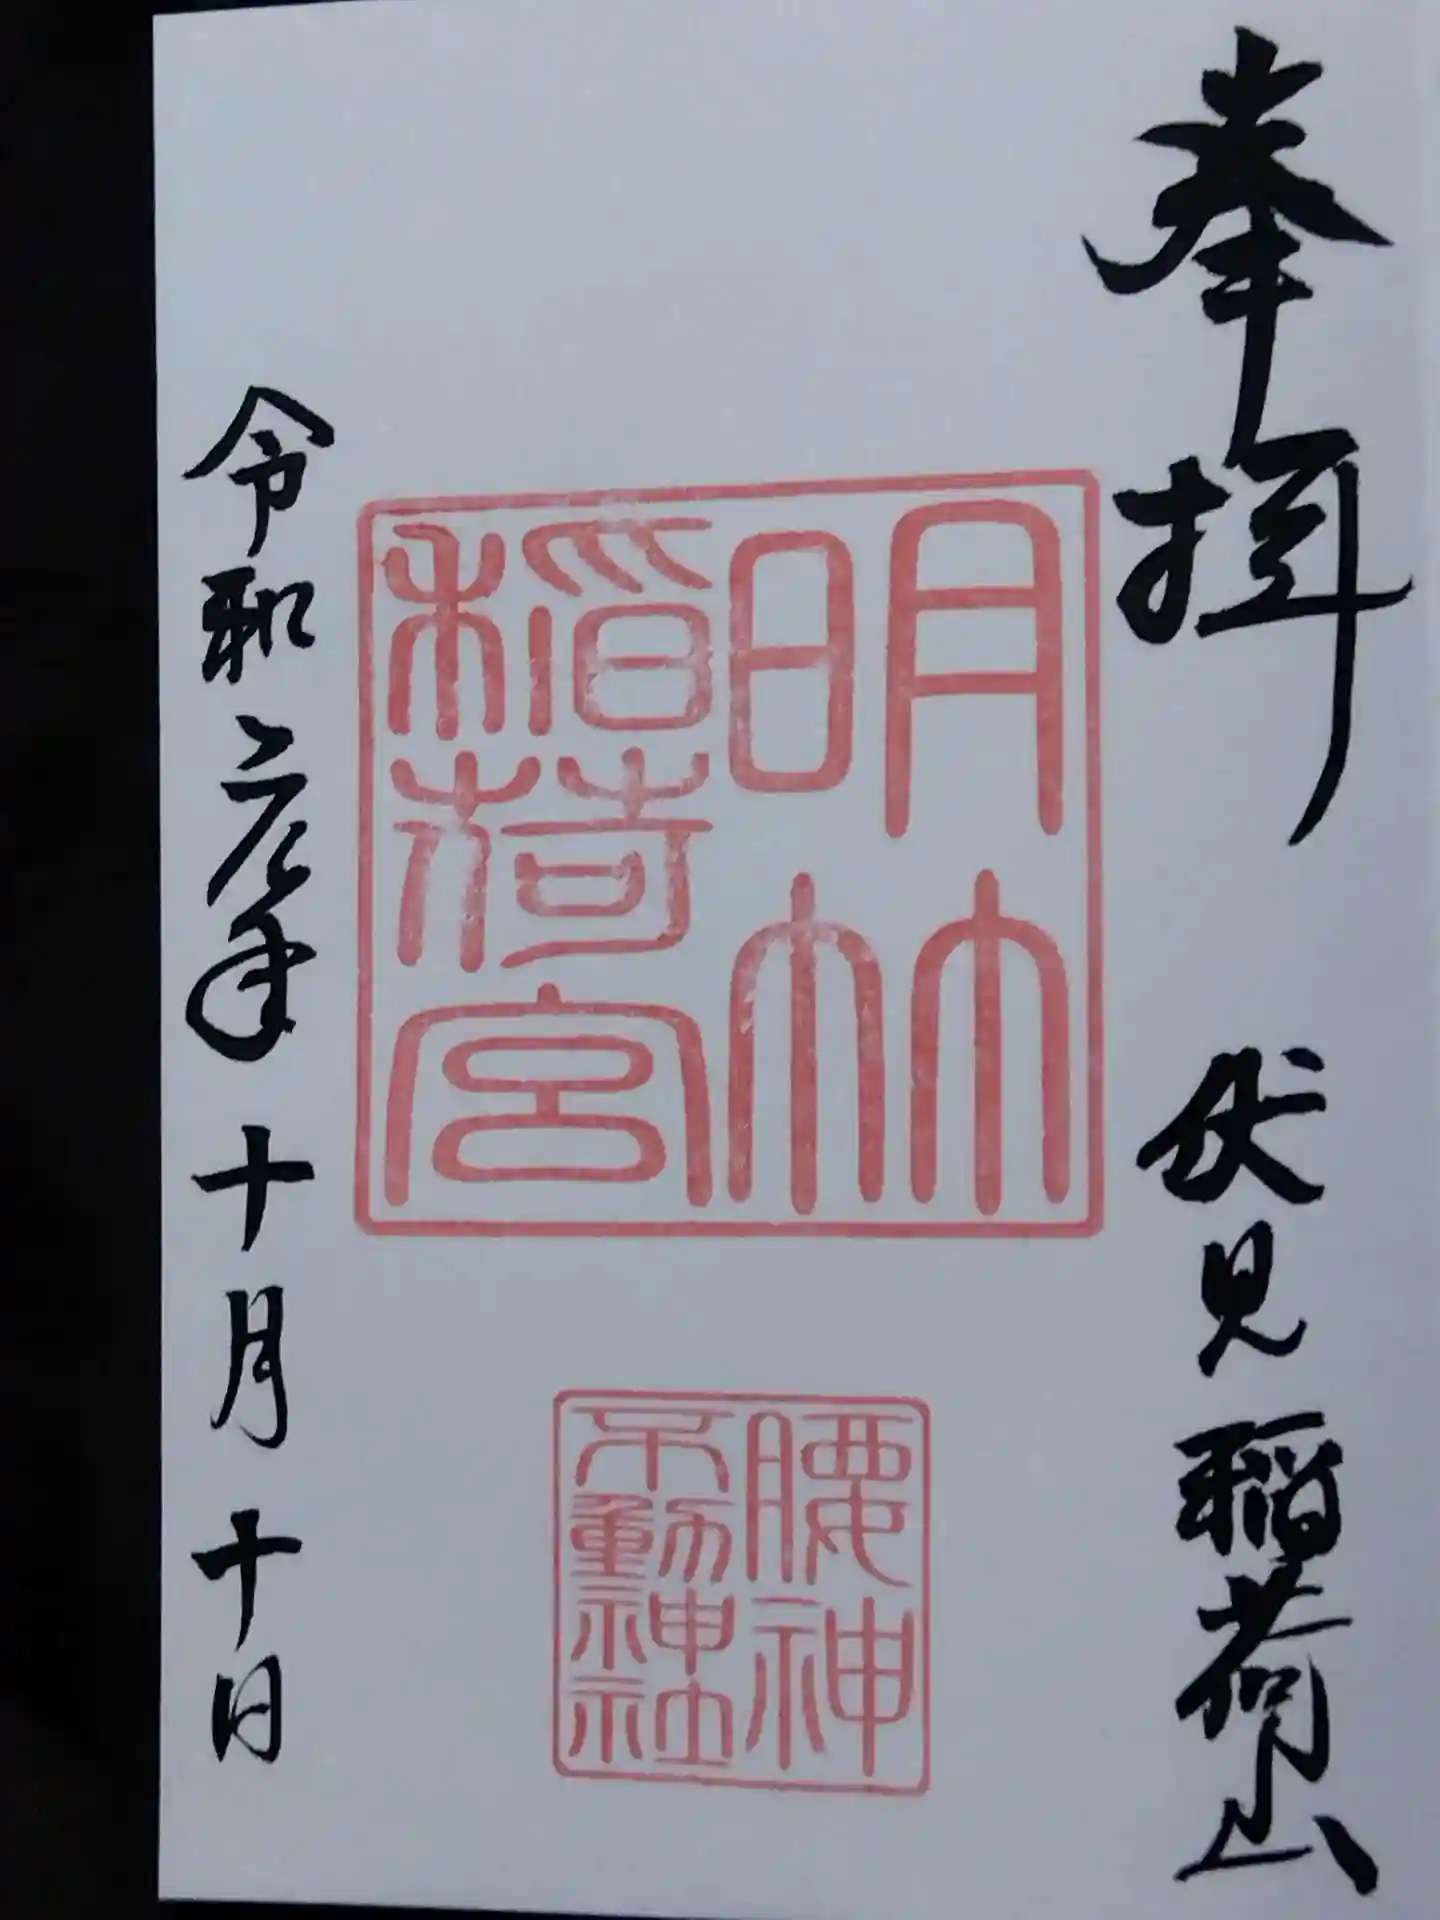 奉揖 伏見稲荷山
明竹
稲荷宮
腰神
不動神社
令和元年十月十日